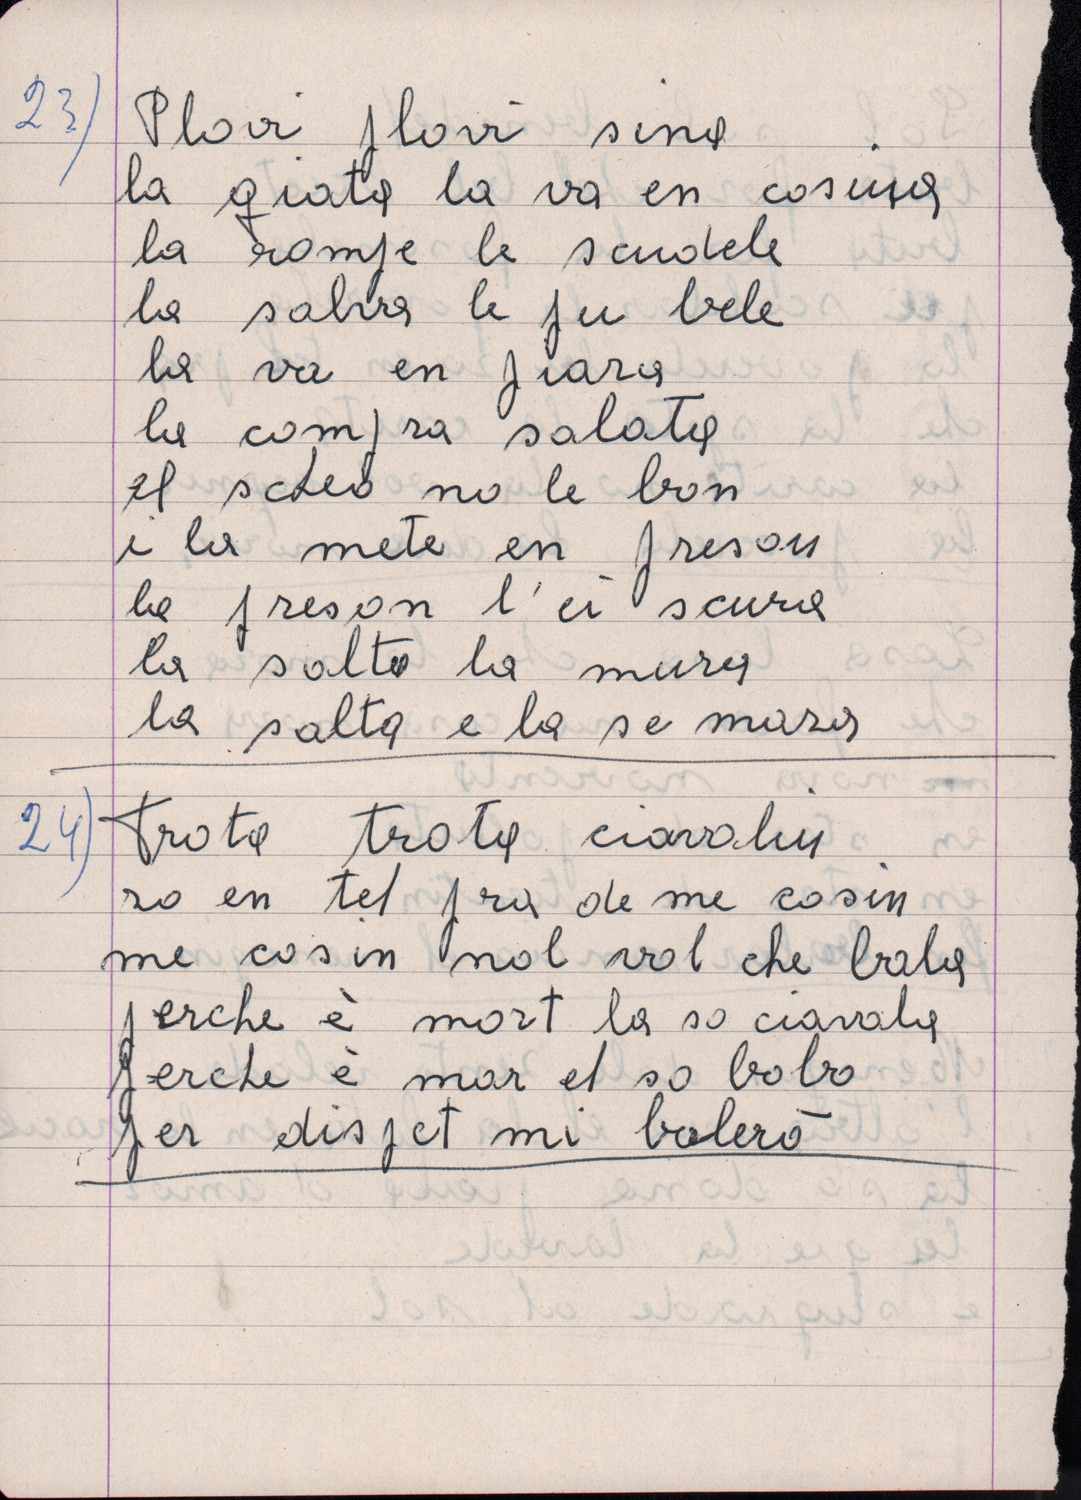 23) Plovi plovi sina
la giata la va en cosina
la rompe le scudele
la salva le pu bele
la va en piara
la compra salata
el scheo no le bon
i la mete en preson
la preson l'ei scura
la salta la mura
la salta e la se mara
24) Trota trota ciavalin
ro en tel pra de me cosin
me cosin nol vol che bala
perche è mort la so ciavala
perche è mor el so bobo
per dispet mi balerò